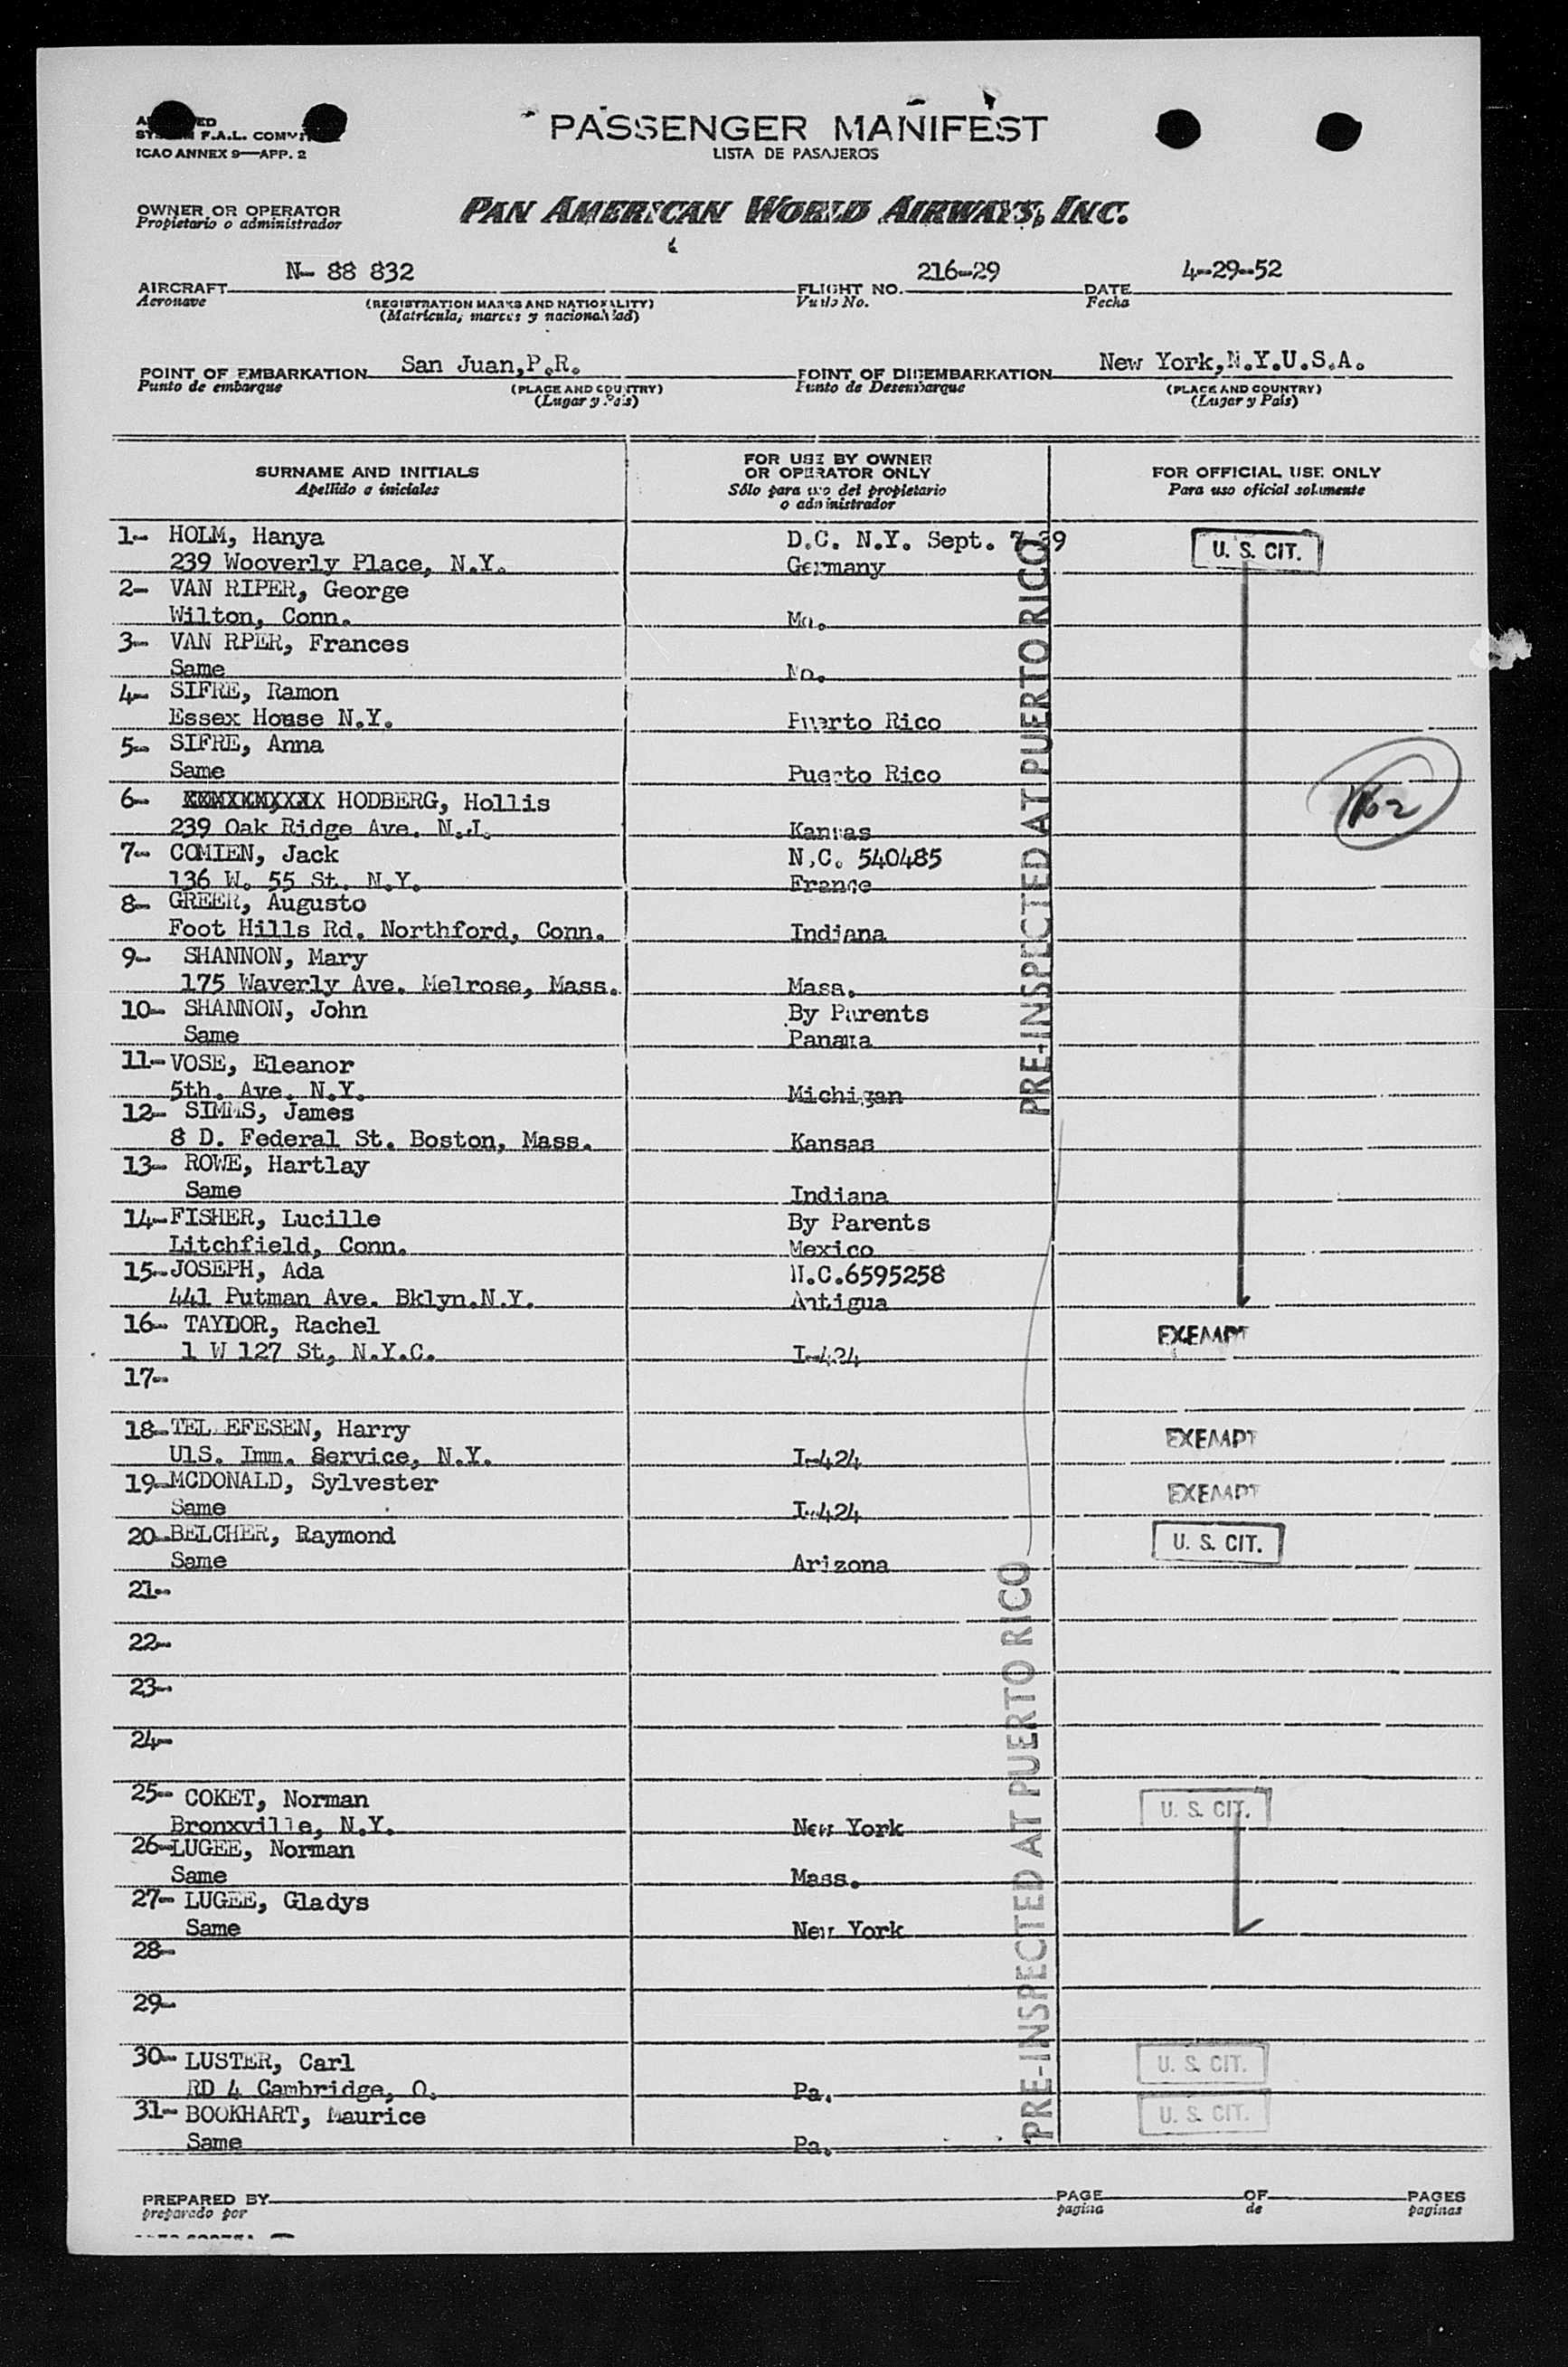 F.A.L.
ICAO ANNEX 9—APP. 2
PASSENGER MANIFEST
LISTA DE PASAJEROS
OWNER OR OPERATOR
Propietario o administrador
PAN AMERICAN WORLD AIRWAYS, INC.
AIRCRAFT N- 88 832
Aeronave
(REGISTRATION MARKS AND NATIONALITY)
(Matrícula, marcas y nacionalidad)
FLIGHT NO. 216-29
Vuelo No.
DATE 4-29-52
Fecha
POINT OF EMBARKATION San Juan,P.R.
Punto de embarque
(PLACE AND COUNTRY)
(Lugar y País)
POINT OF DISEMBARKATION New York,N.Y.U.S.A.
Punto de Desembarque
(PLACE AND COUNTRY)
(Lugar y País)
SURNAME AND INITIALS
Apellido e iniciales
FOR USE BY OWNER
OR OPERATOR ONLY
Sólo para uso del propietario
o administrador
FOR OFFICIAL USE ONLY
Para uso oficial solamente
1- HOLM, Hanya D.C. N.Y. Sept. 7,39 U. S. CIT.
239 Wooverly Place, N.Y. Germany
2- VAN RIPER, George
Wilton, Conn. Mo.
3- VAN RPER, Frances
Same
4- SIFRE, Ramon
Essex House N.Y. Puerto Rico
5- SIFRE, Anna
Same Puerto Rico
6- HODBERG, Hollis 1162
239 Oak Ridge Ave. N.J. Kansas
7- COMIEN, Jack N.C. 540485
136 W. 55 St. N.Y. France
8- GREER, Augusto
Foot Hills Rd. Northford, Conn. Indiana
9- SHANNON, Mary
175 Waverly Ave. Melrose, Mass. Mass.
10- SHANNON, John By Parents
Same Panama
11- VOSE, Eleanor
5th. Ave. N.Y. Michigan
12- SIMMS, James
8 D. Federal St. Boston, Mass. Kansas
13- ROWE, Hartlay
Same Indiana
14- FISHER, Lucille By Parents
Litchfield, Conn. Mexico
15- JOSEPH, Ada N.C.6595258
441 Putman Ave. Bklyn.N.Y. Antigua
16- TAYLOR, Rachel EXEMPT
1 W 127 St, N.Y.C. I-424
17-
18- TELLEFESEN, Harry EXEMPT
UlS. Imm. Service, N.Y. I-424
19- MCDONALD, Sylvester EXEMPT
Same I-424
20- BELCHER, Raymond U. S. CIT.
Same Arizona
21-
22-
23-
24-
25- COKET, Norman U. S. CIT.
Bronxville, N.Y. New York
26- LUGEE, Norman
Same Mass.
27- LUGEE, Gladys
Same New York
28-
29-
30- LUSTER, Carl U. S. CIT.
RD 4 Cambridge, O. Pa.
31- BOOKHART, Maurice U. S. CIT.
Same Pa.
PRE-INSPECTED AT PUERTO RICO
PRE-INSPECTED AT PUERTO RICO
PREPARED BY
preparado por
PAGE OF PAGES
pagina de paginas